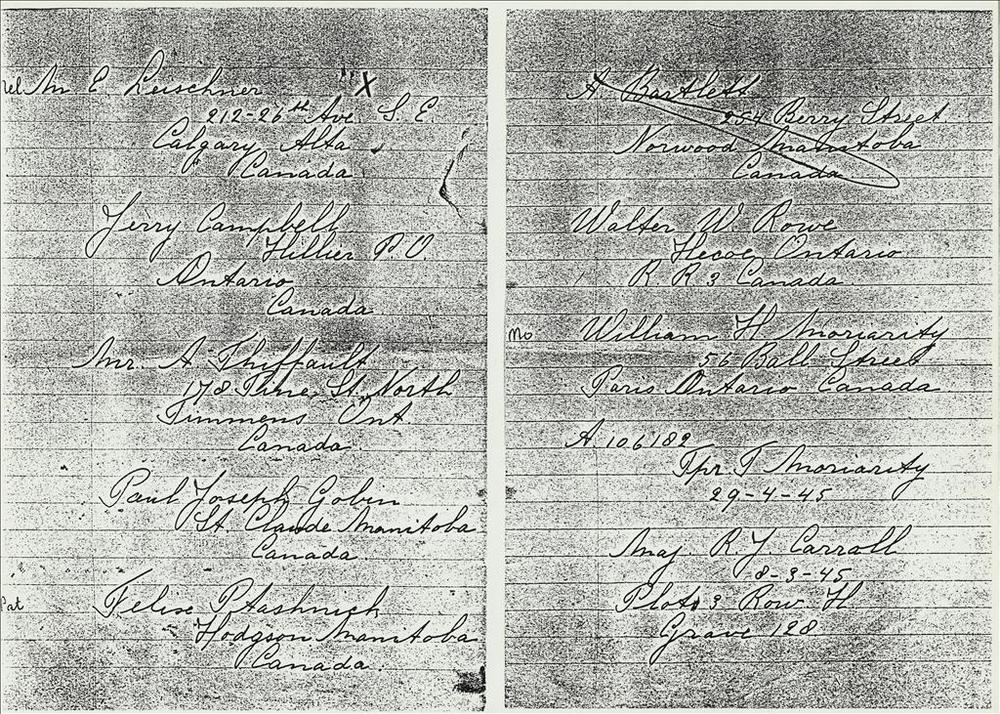 Mr E Leischner X
212-26th Ave. S. E
Calgary Alta
Canada
Jerry Campbell
Hillier P.O.
Ontario
Canada
Mr. A Thiffault
178 Pine St. North
Timmens Ont.
Canada
Paul Joseph Gobin
St. Claude Manitoba
Canada
Pat
Felix Ptashnick
Hodgson Manitoba
Canada
A. Bartlett
254 Berry Street
Norwood Manitoba
Canada
Walter W. Rowe
Ontario
R R 3 Canada
Mo
William H Moriarity
56 Ball Street
Paris Ontario Canada
A 106182
Tpr T Moriarity
29-4-45
Maj. R. J. Carroll
8-3-45
Plot 3 Row H
Grave 128